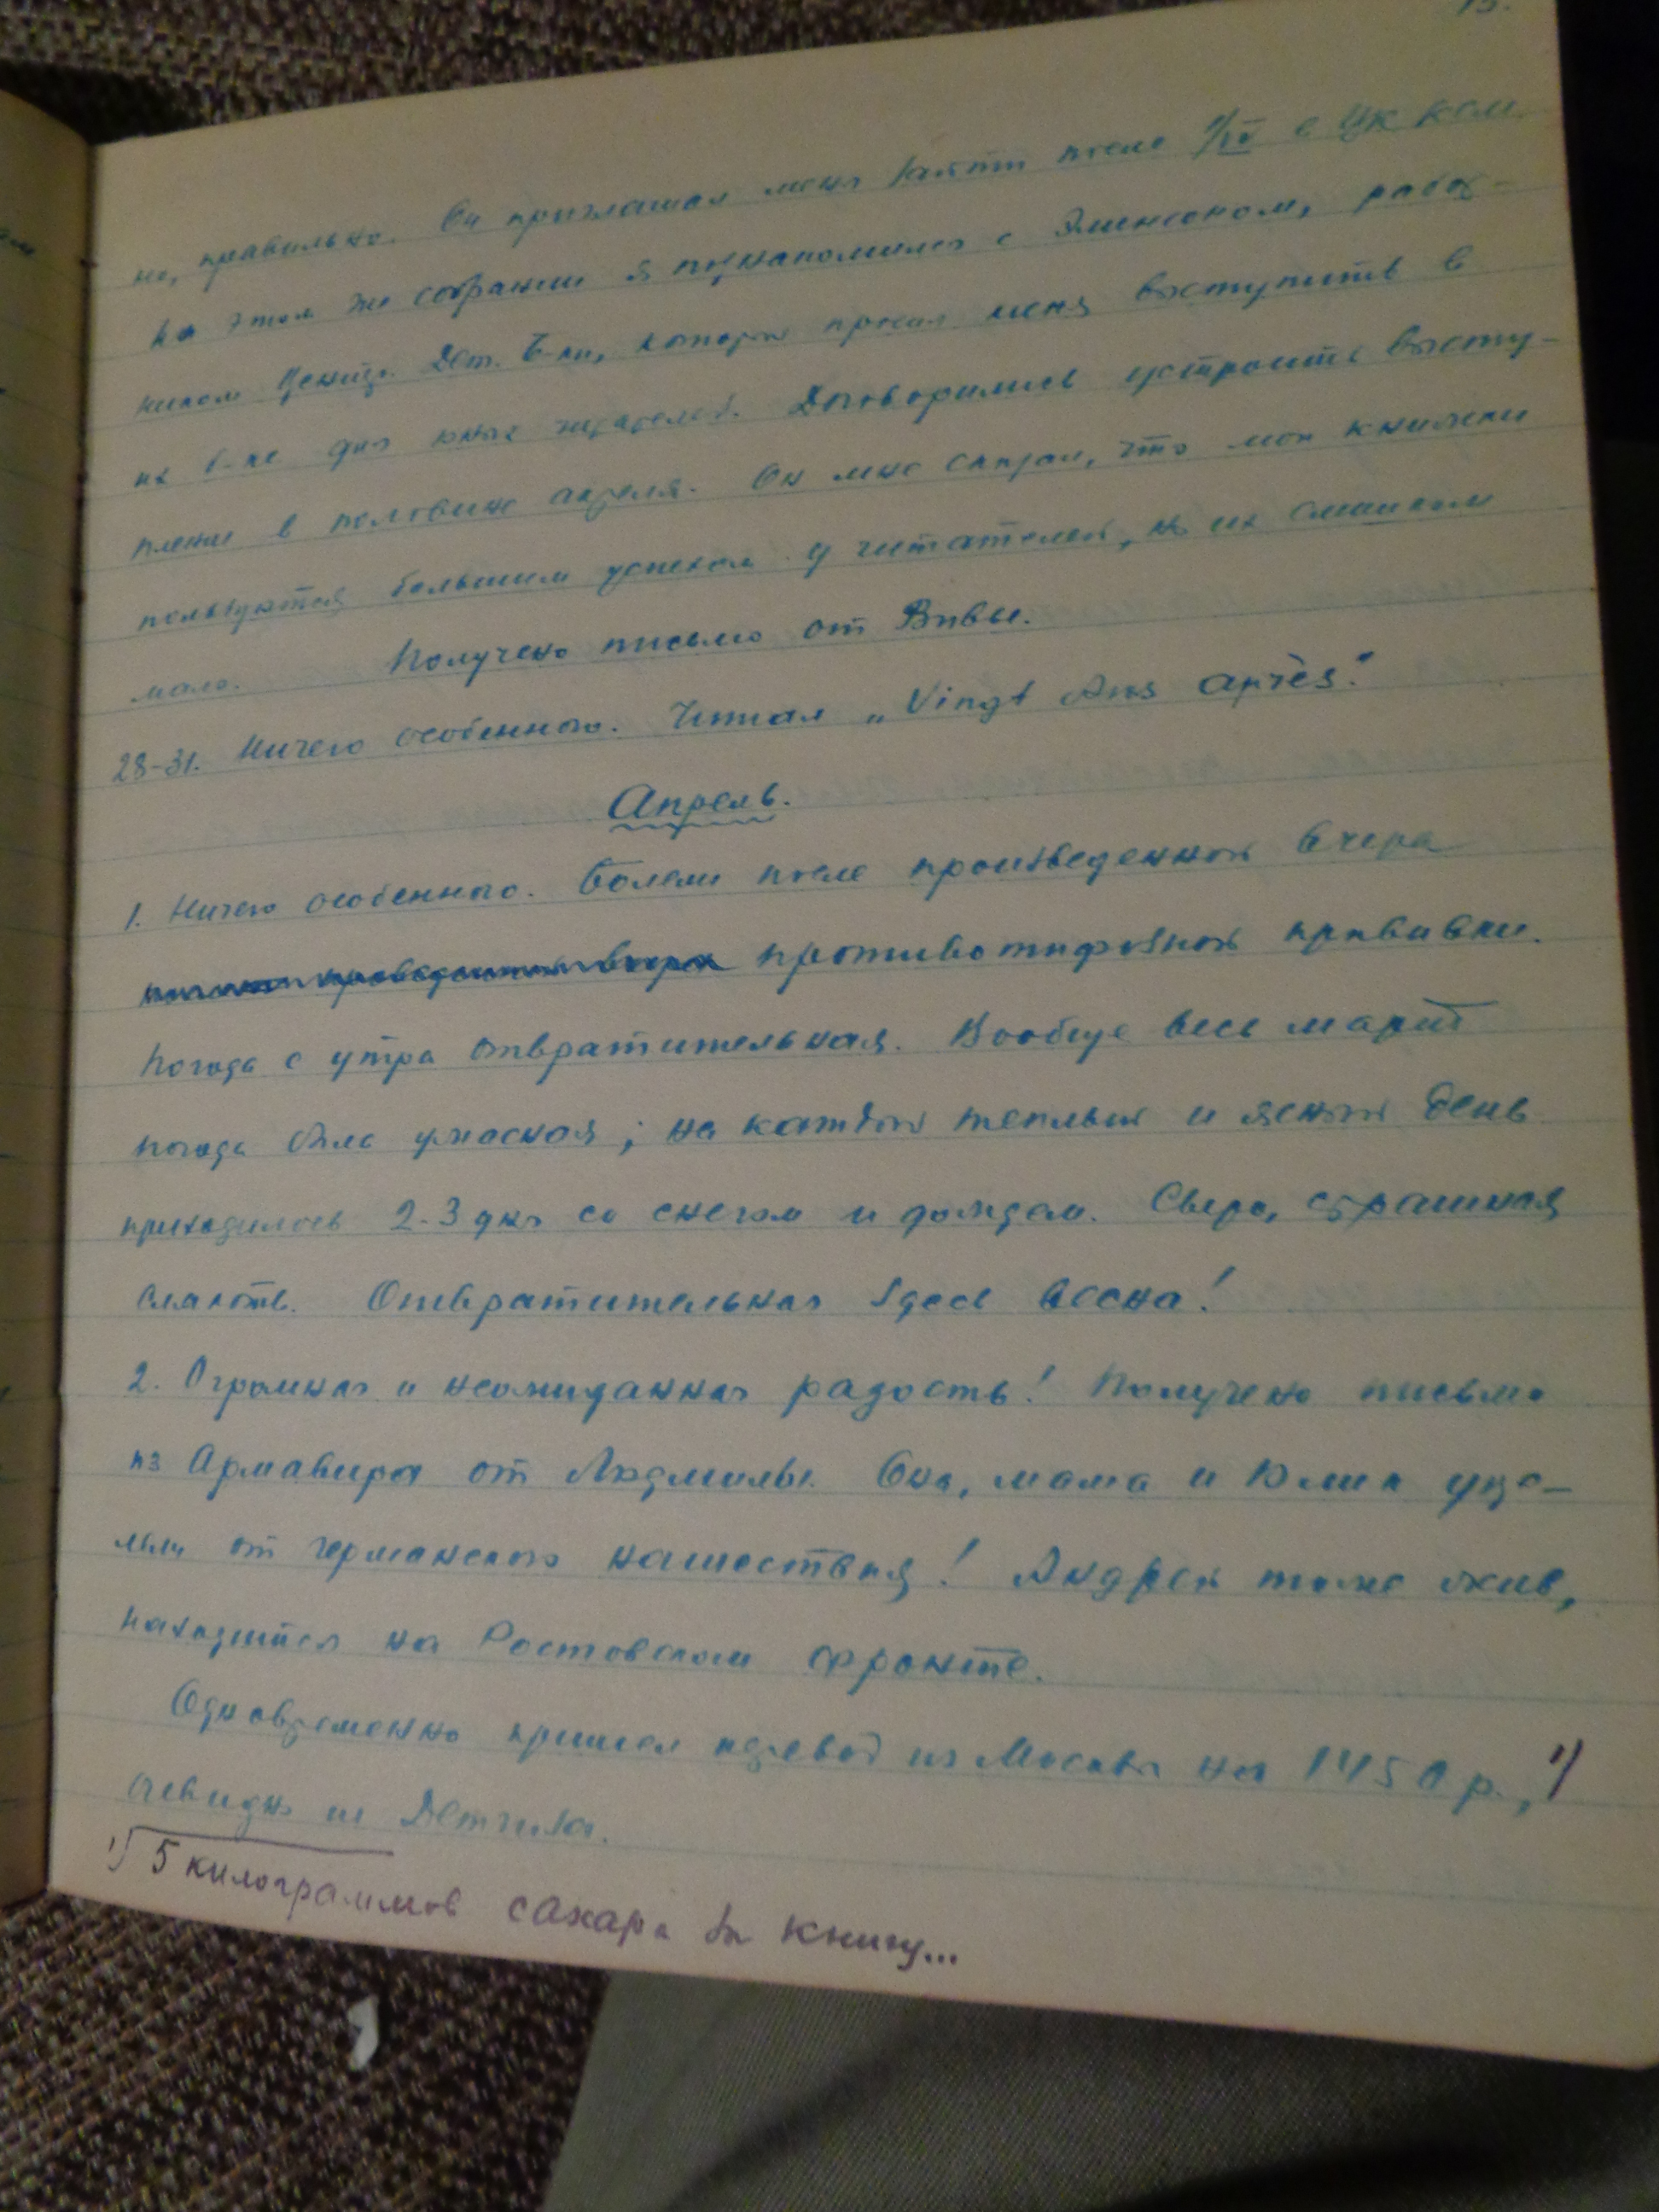 но, правильно. Он приглашал меня зайти после 1/IV в ЦК Ком.
На этом же собрании я познакомился с рабoт-
ником Центр. Дет. Б-ки, который просил меня выступить в
их б-ке для юных читателей. Договорились устроить высту-
пление в половине апреля. Он мне сказал, что мои книжки
пользуются большим успехом у читателей, но их слишком
мало. Получено письмо от Вивы.
28-31. Ничего особенного. Читал „Vingt Ans après".
Апрель.
1. Ничего особенного. Болели после произведенной вчера
противотифозной прививки.
Погода с утра отвратительная. Вообще весь март
погода была ужасная; на каждый теплый и ясный день
приходилось 2-3 дня со снегом и дождем. Сыро, страшная
слякоть. Отвратительная здесь весна!
2. Огромная и неожиданная радость! Получено письмо
из Армавира от Людмилы. Она, мама и Юлия уце-
лели от германского нашествия! Андрей тоже жив,
находится на Ростовском фронте.
Одновременно пришел перевод из Москвы на 1450 р., 1)
очевидно из Детгиза.
1) 5 килограммов сахара за книгу...